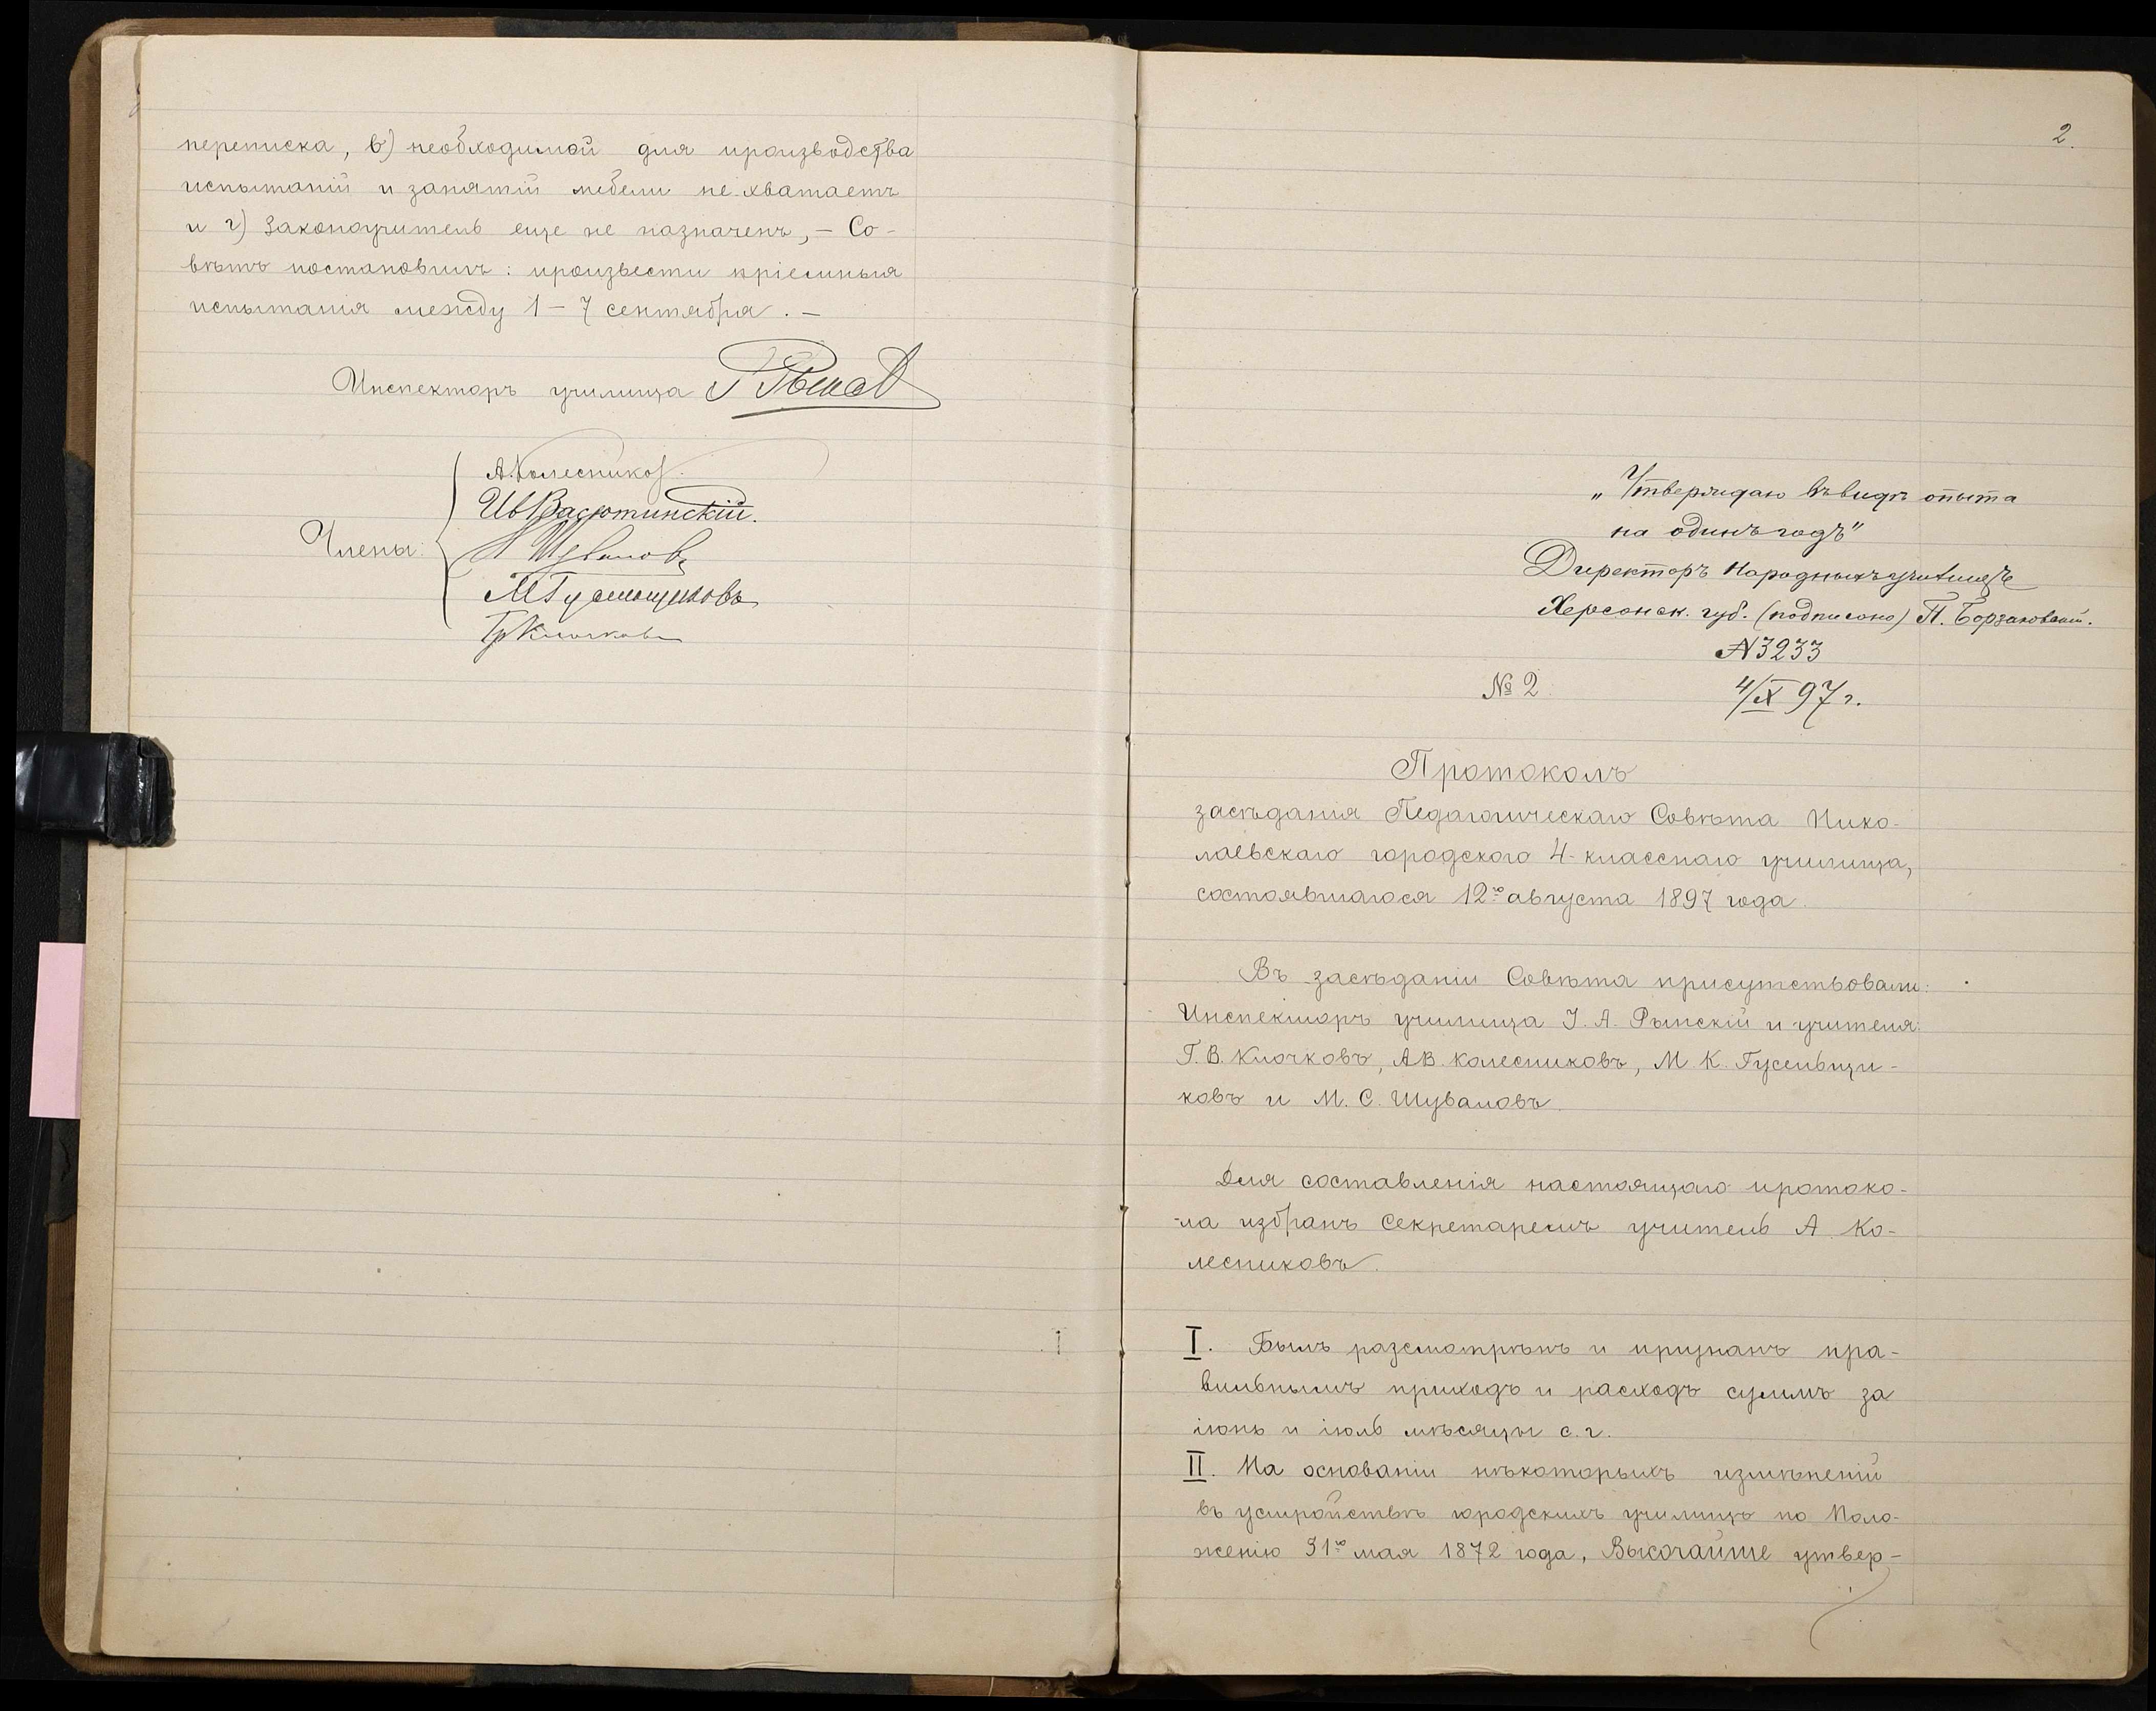 переписка, в) необходимой для производства
испытаній и занятій мебели не хватаетъ
и г) Законоучитель еще не назначенъ, – Со-
вѣтъ постановилъ: произвести пріемныя
испытанія между 1 – 7 сентября. –
Инспекторъ училища
Члены:
А. Колесников
Ив Васютинскій.
Шуваловъ
М Гусельщиковъ
Гр Клочковъ
2.
„Утверждаю въ видѣ опыта
на одинъ годъ"
Директоръ Народныхъ училищъ
Херсонск. губ. (подписано) П. Борзаковскій.
№ 3233
№ 2
4/IX 97 г.
Протоколъ
засѣданія Педагогическаго Совѣта Нико-
лаевскаго городского 4-класснаго училища,
состоявшагося 12го августа 1897 года.
Въ засѣданіи Совѣта присутствовали:
Инспекторъ училища І. А. Рымскій и учителя:
Г. В. Клочковъ, А.В. Колесниковъ, М. К. Гусельщи-
ковъ и М. С. Шуваловъ.
Для составленія настоящаго протоко-
ла избранъ Секретаремъ учитель А. Ко-
лесниковъ.
I. Былъ разсмотрѣнъ и признанъ пра-
вильнымъ приходъ и расходъ суммъ за
іюнь и іюль мѣсяцы с. г.
II. На основаніи нѣкоторыхъ измѣненій
въ устройствѣ городскихъ училищъ по Поло-
женію 31го мая 1872 года, Высочайше утвер-